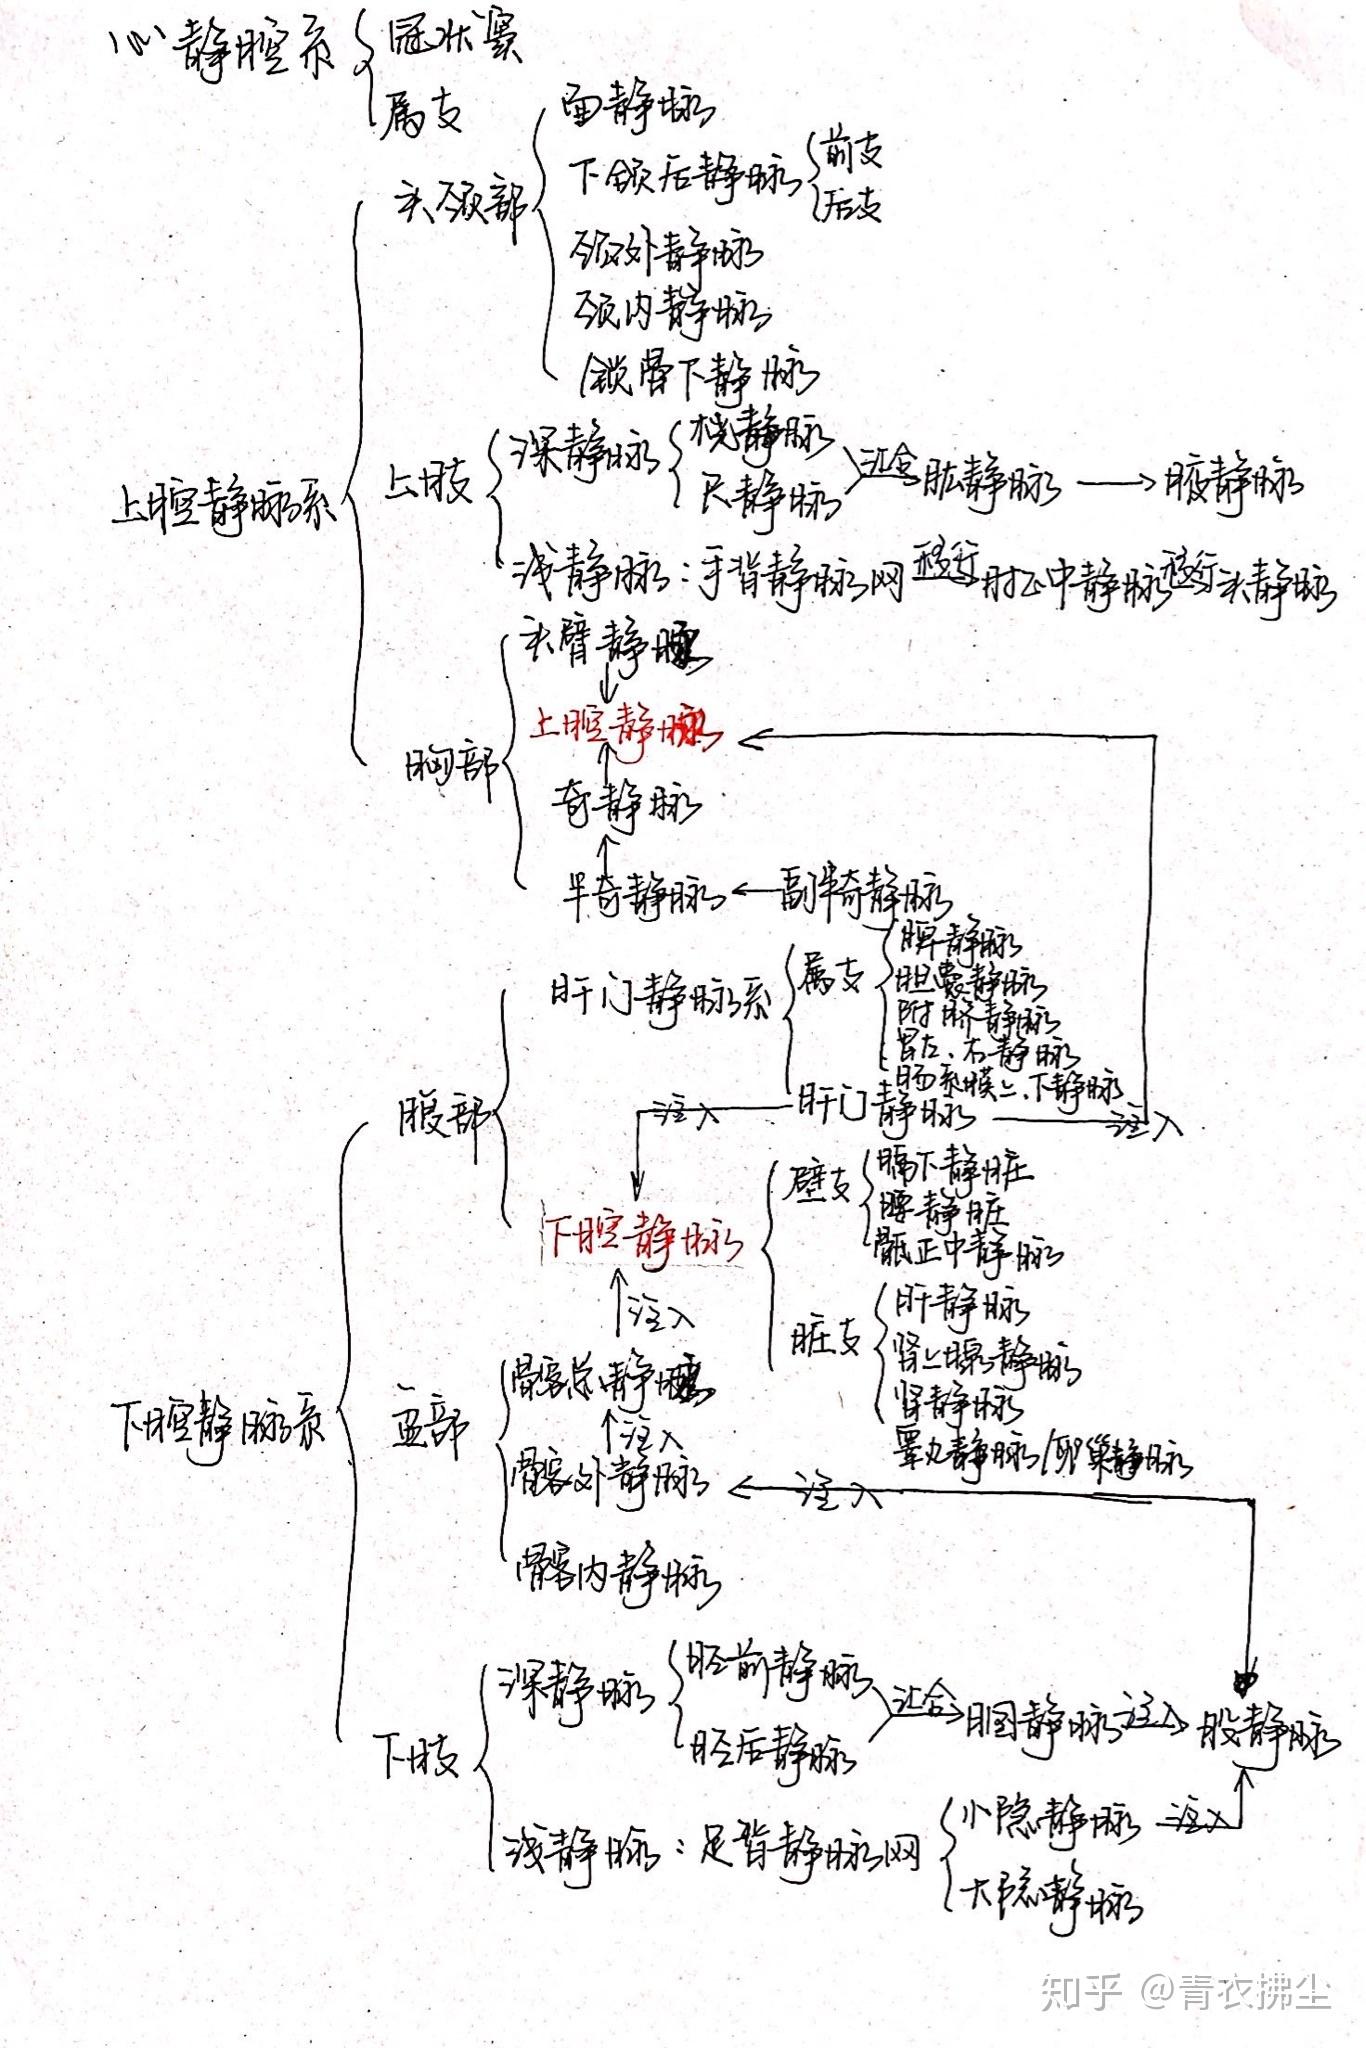 心静腔系 冠状窦
属支
面静脉
头颈部 下颌后静脉 前支
后支
颈外静脉
颈内静脉
锁骨下静脉
上腔静脉系 上肢 深静脉 桡静脉
尺静脉 汇合 肱静脉 腋静脉
浅静脉：手背静脉网 移行 肘正中静脉 移行 头静脉
头臂静脉
上腔静脉
胸部 奇静脉
半奇静脉 副半奇静脉
肝门静脉系 属支 脾静脉
胆囊静脉
附脐静脉
胃左、右静脉
肠系膜上、下静脉
腹部 注入 肝门静脉 注入
下腔静脉 壁支 膈下静脏
腰静脏
骶正中静脉
注入 脏支 肝静脉
肾上腺静脉
肾静脉
睾丸静脉/卵巢静脉
下腔静脉系 盆部 髂总静脉
注入
髂外静脉 注入
髂内静脉
下肢 深静脉 胫前静脉
胫后静脉 汇合 腘静脉 注入 股静脉
浅静脉：足背静脉网 小隐静脉 注入
大隐静脉
知乎 @青衣拂尘